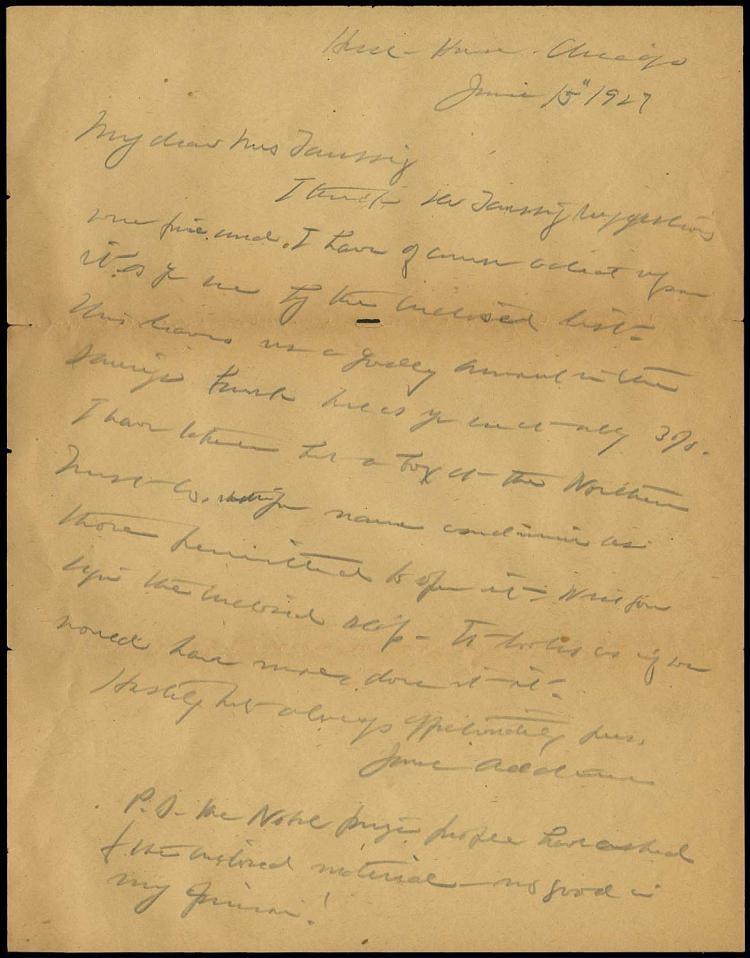 Hull-House - Chicago
June 15" 1927
My dear Mrs Taussig
I think Mr Taussig suggestions
were fine and I have of course acted upon
it as you see by the enclosed list.
This leaves us a goodly amount in the
savings bank but as you see at only 3%.
I have taken a box at the Northern
Trust Co. name as
those permitted to open it. Will you
sign the enclosed slip - It looks as if we
have money, don't it.
Hastily but always affectionately yours,
Jane Addams
P.S. The Nobel prize people have asked
f the enclosed material - no good in
my opinion!